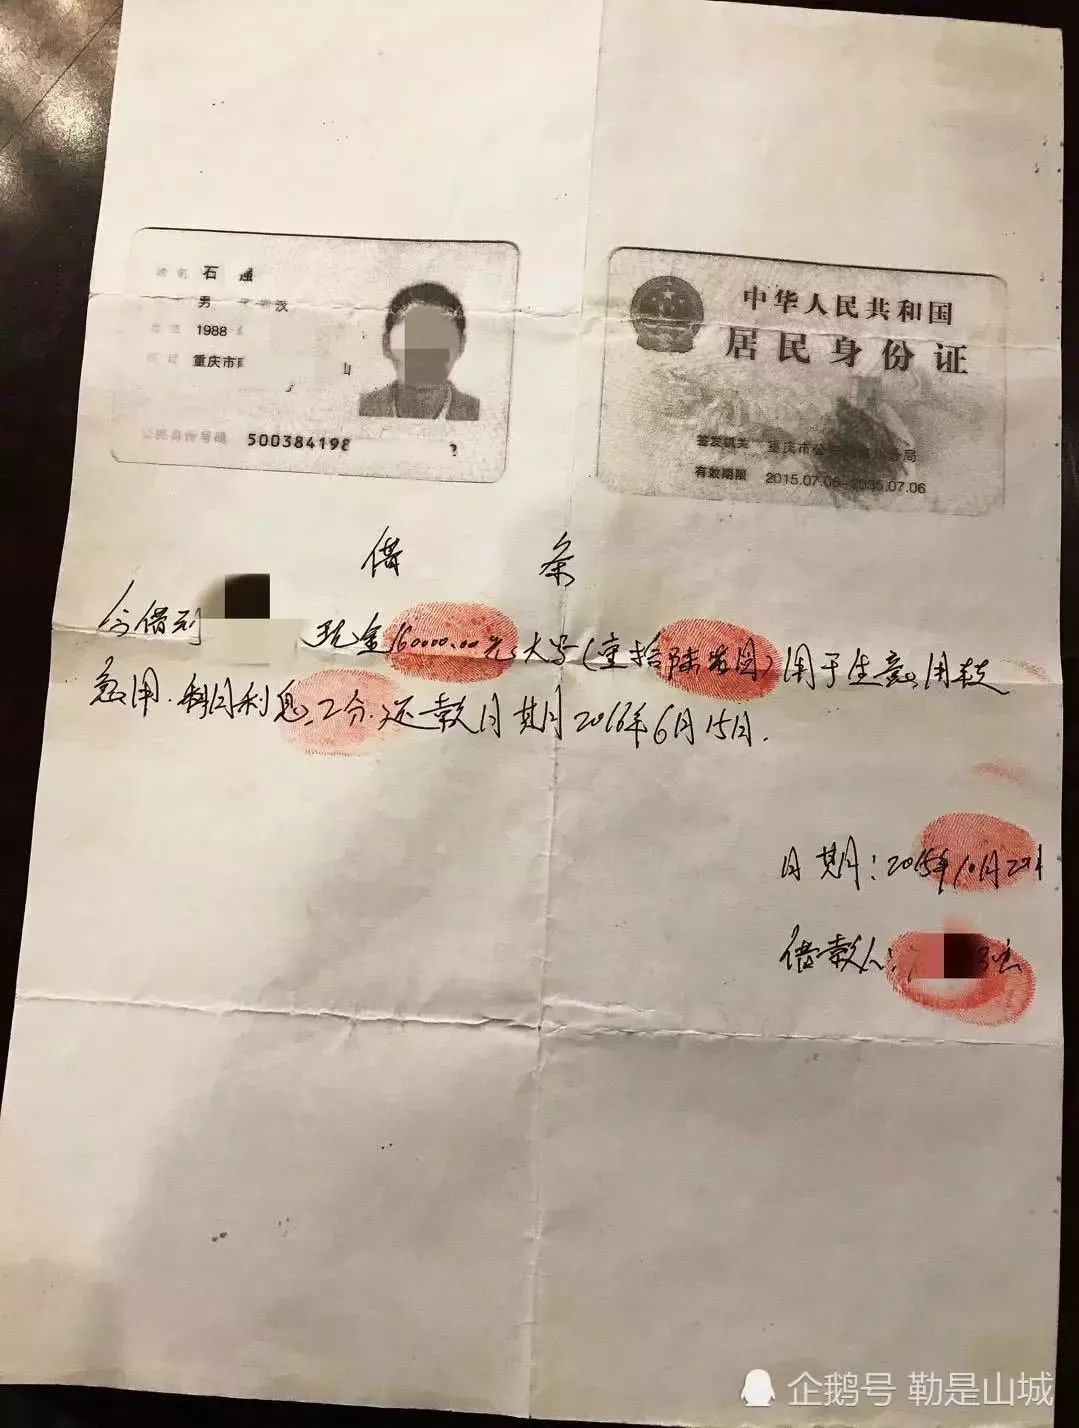 石 强
男 汉
1988
重庆市
山
公民身份号码 500384198
中华人民共和国
居民身份证
签发机关 重庆市公安 川分局
有效期限 2015.07.06-2035.07.06
借 条
今借到 现金160000.00元,大写(壹拾陆万圆)用于生意用款
急用.利息2分.还款日期2016年6月15日.
日期:2015年10月20日
借款人:
企鹅号 勒是山城